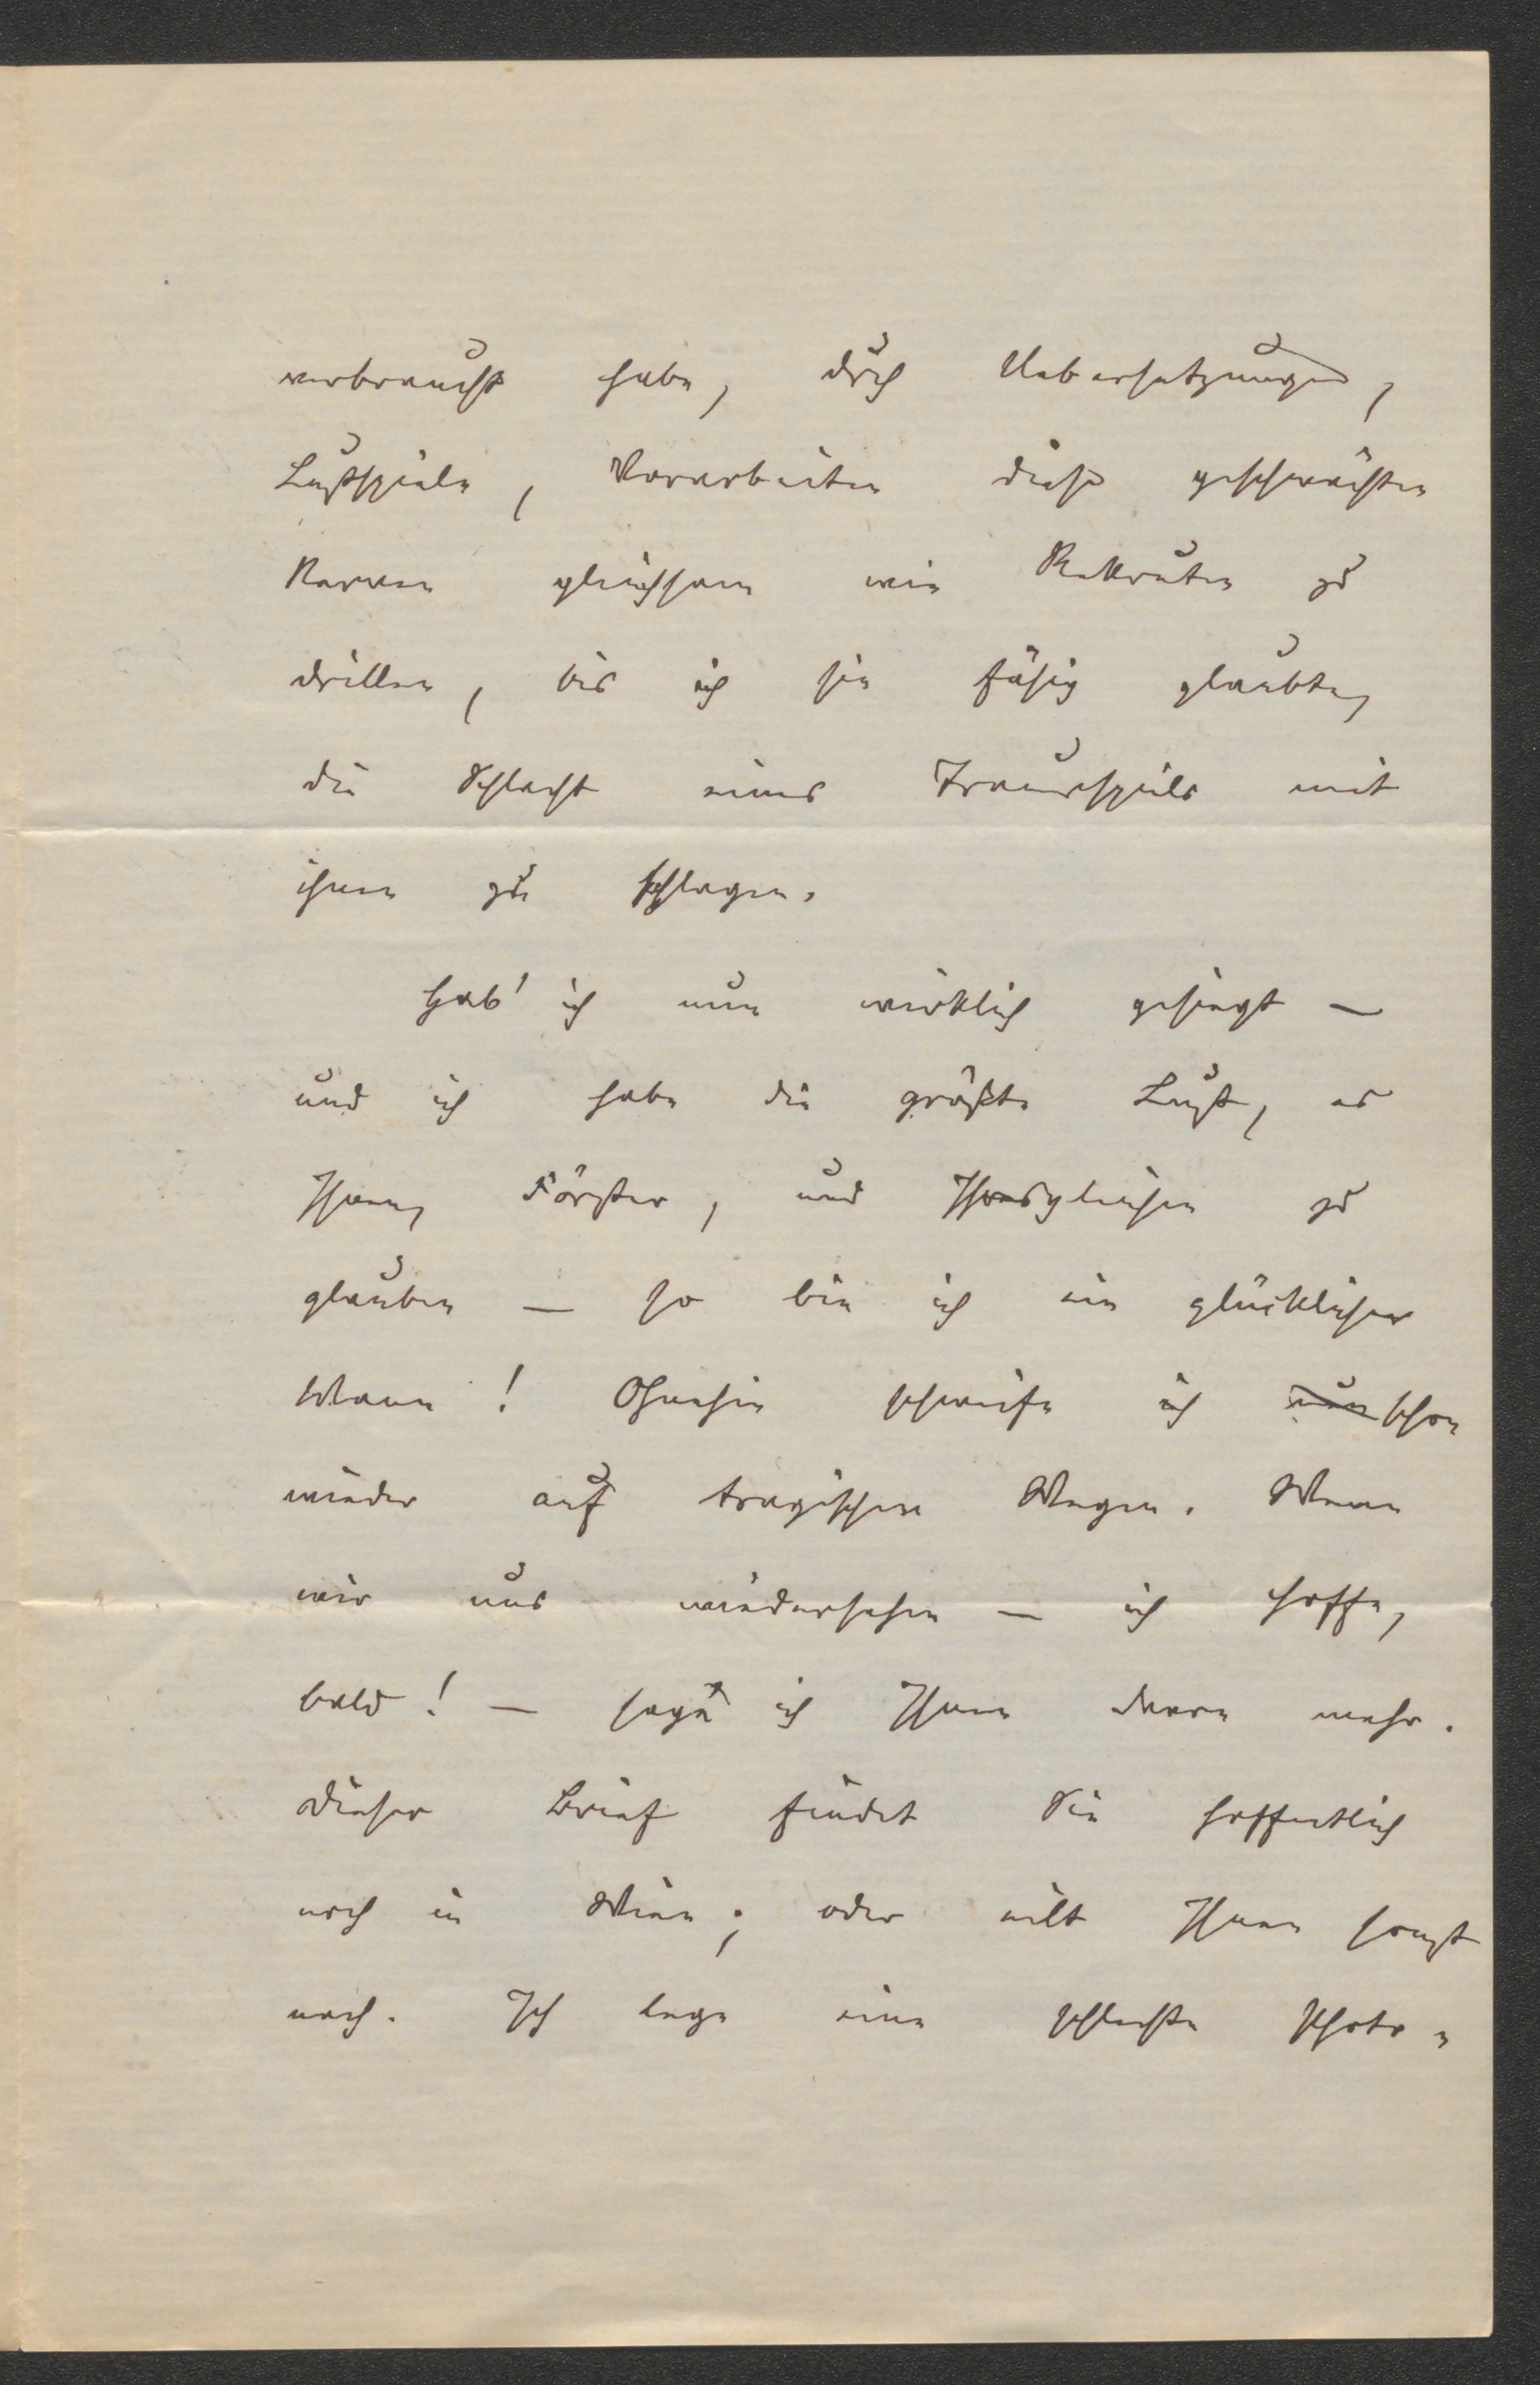 verbraucht habe, durch Uebersetzungen,
Lustspiele, Vorarbeiten diese geschwächten
Nerven gleichsam wie Rekruten zu
drillen, bis ich sie fähig glaubte,
die Schlacht eines Trauerspiels mit
ihnen zu schlagen.
Hab' ich nun wirklich gesiegt —
und ich habe die größte Lust, es
Ihnen, Förster, und Ihresgleichen zu
glauben — so bin ich ein glücklicher
Mann! Ohnehin schweife ich nun schon
wieder auf tragischen Wegen. Wenn
wir uns wiedersehen — ich hoffe,
bald! — sag' ich Ihnen davon mehr.
Dieser Brief findet Sie hoffentlich
noch in Wien; oder eilt Ihnen sonst
nach. Ich lege eine schlechte Photo=